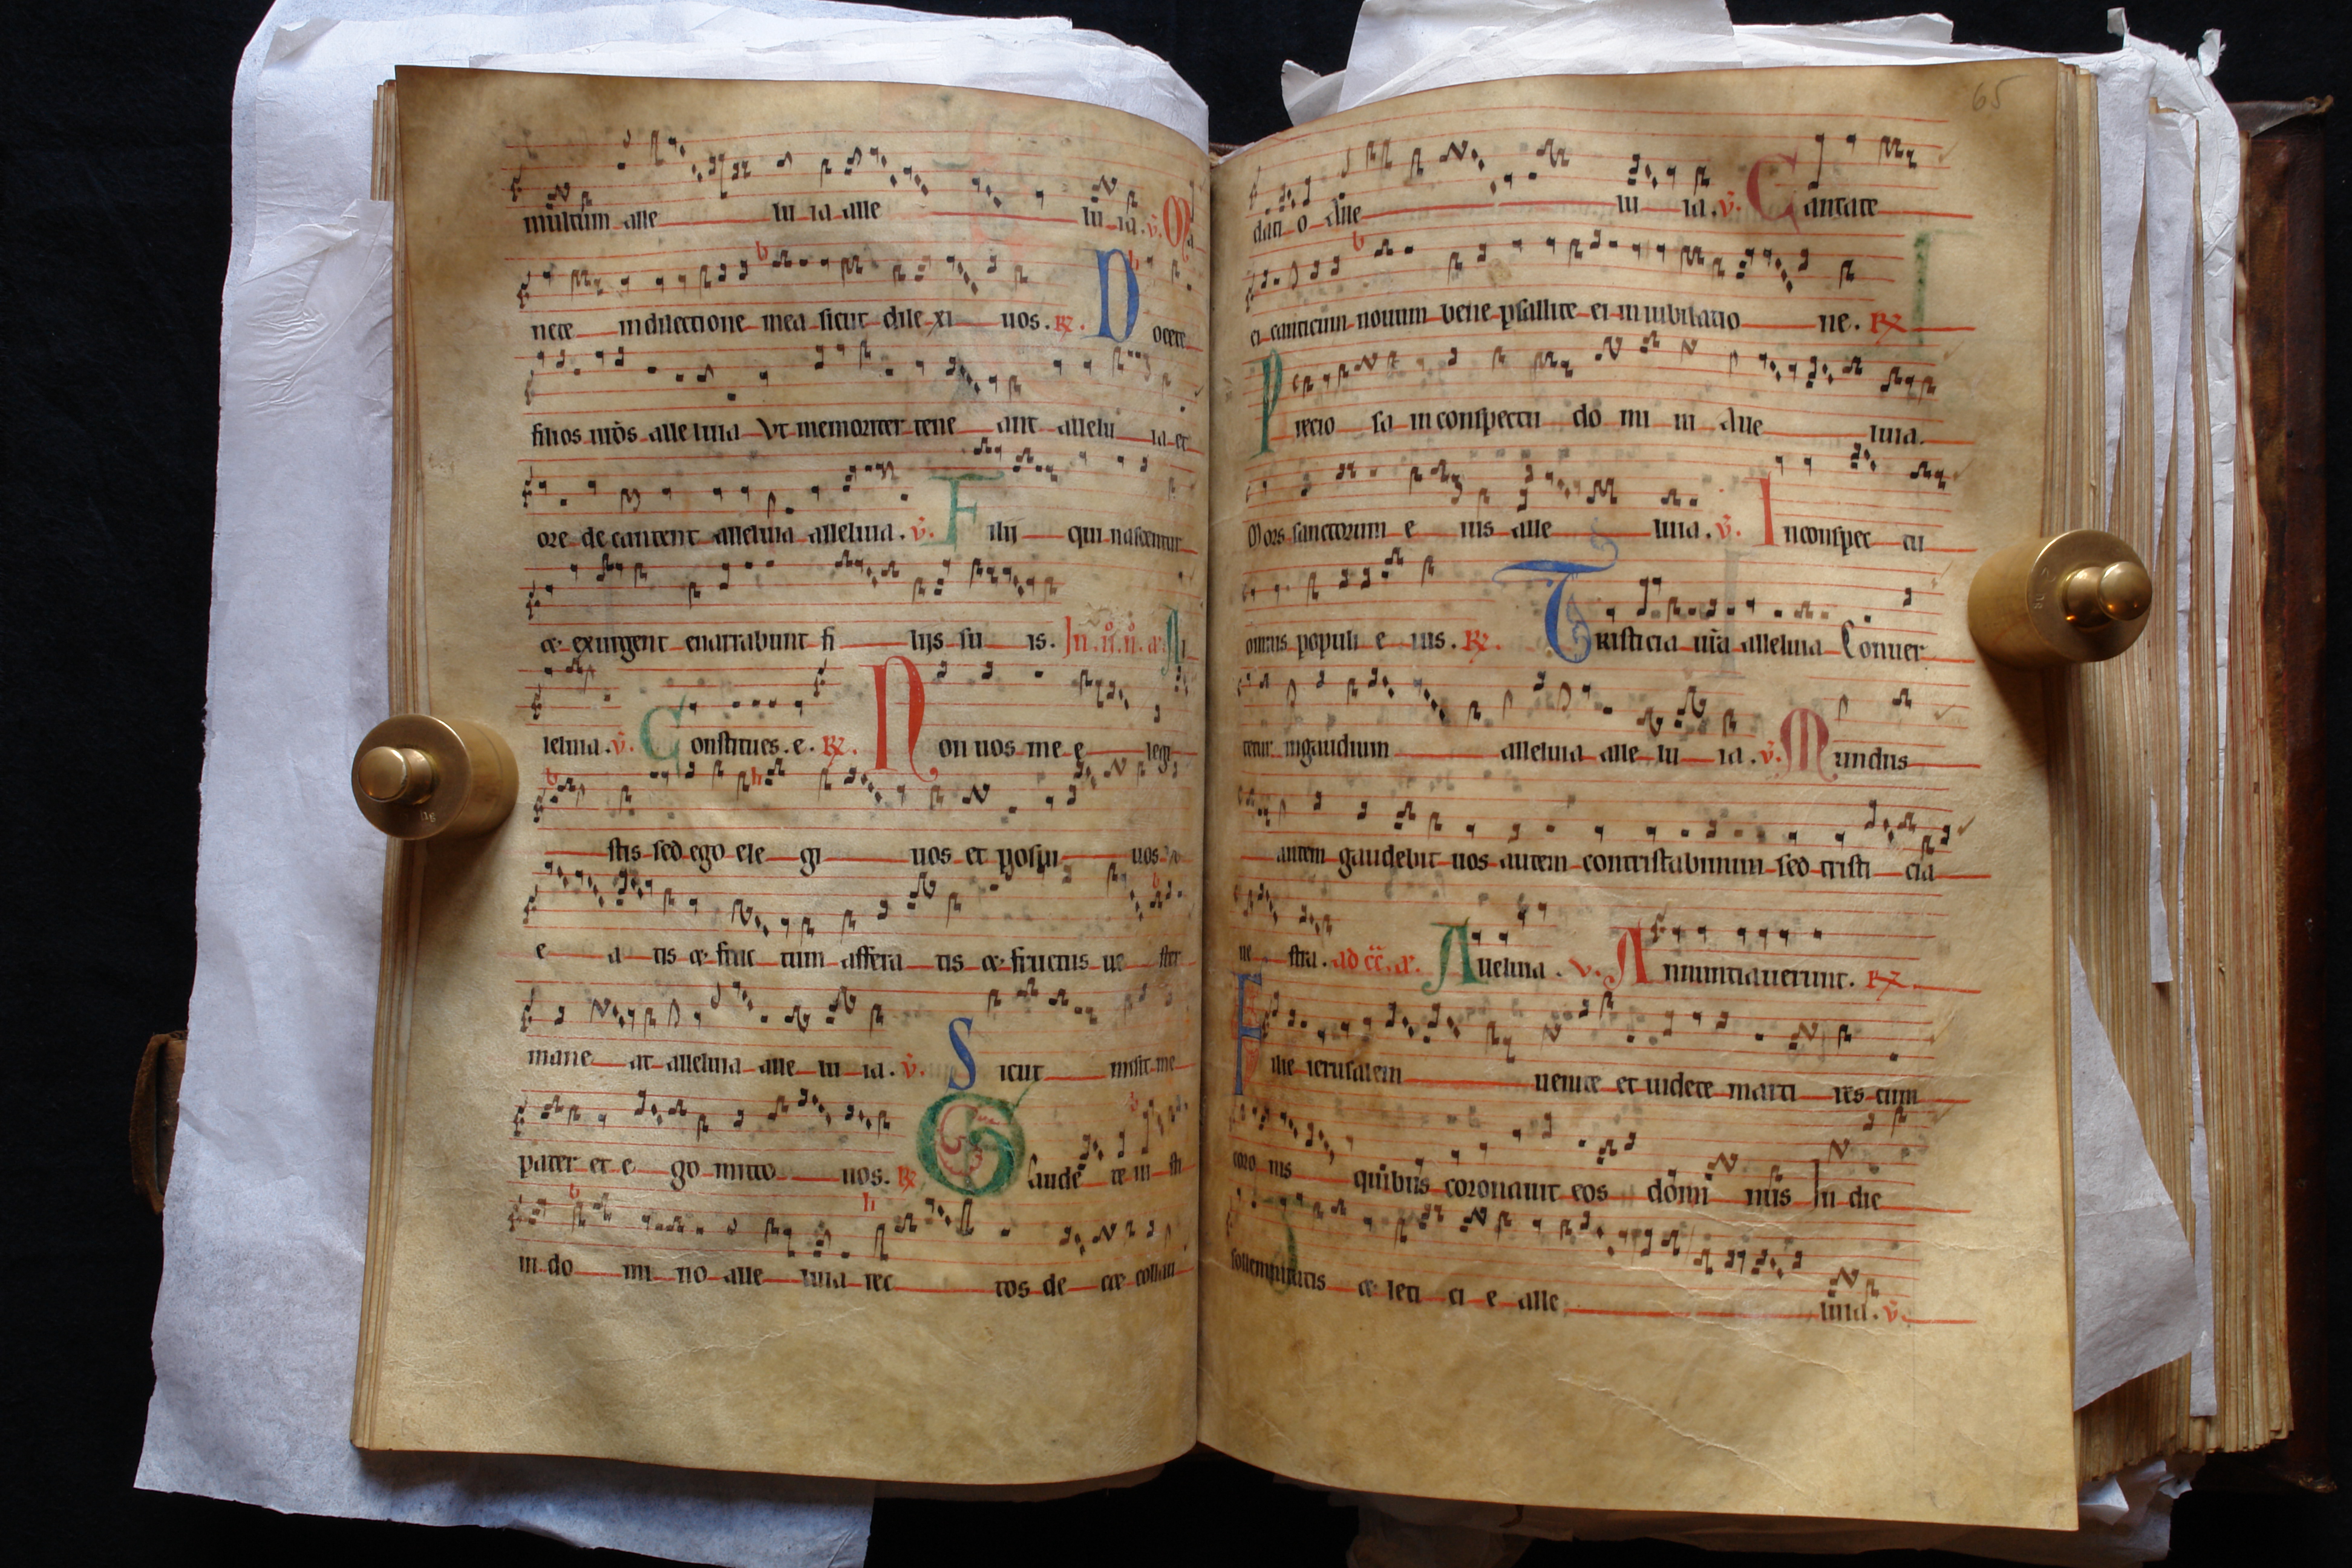 multum alle lu ia alle lu ia. v. Ma
nete in dilectione mea sicut dile xi uos. R. D ocete
filios ur̄os alle luia Vt memoriter tene ant allelu ia et
ore decantent alleluia alleluia. v. F ilij qui nascentur
et exurgent enarrabunt fi lijs su is. In
leluia. v. C onstitues. e. R. N on uos me e legi
stis sed ego ele gi uos et posui uos
e a tis et fruc tum affera tis et fructus ue ster
mane at alleluia alle lu ia. v. S icut misit me
pater et e go mitto uos. R. G aude te iu sti
in do mi no alle luia rec tos de cet collau
65
dati o alle lu ia. v. C antate
ei canticum nouum bene psallite ei in iubilatio ne. R
P recio sa in conspectu do mi ni alle luia.
Mors sanctorum e ius alle luia. v. I nconspec tu
omnis populi e ius. R. T risticia ur̄a alleluia Conuer
tetur ingaudium alleluia alle lu ia. v. M undus
autem gaudebit uos autem contristabimini sed tristi cia
ue stra. ad cc̄. æ. A lleluia. v. A nnuntiauerunt. R
F ilie ierusalem uenite et uidete marti res cum
coro nis quibus coronauit eos domi nus In die
sollempnitatis et leti ci e alle luia. v.